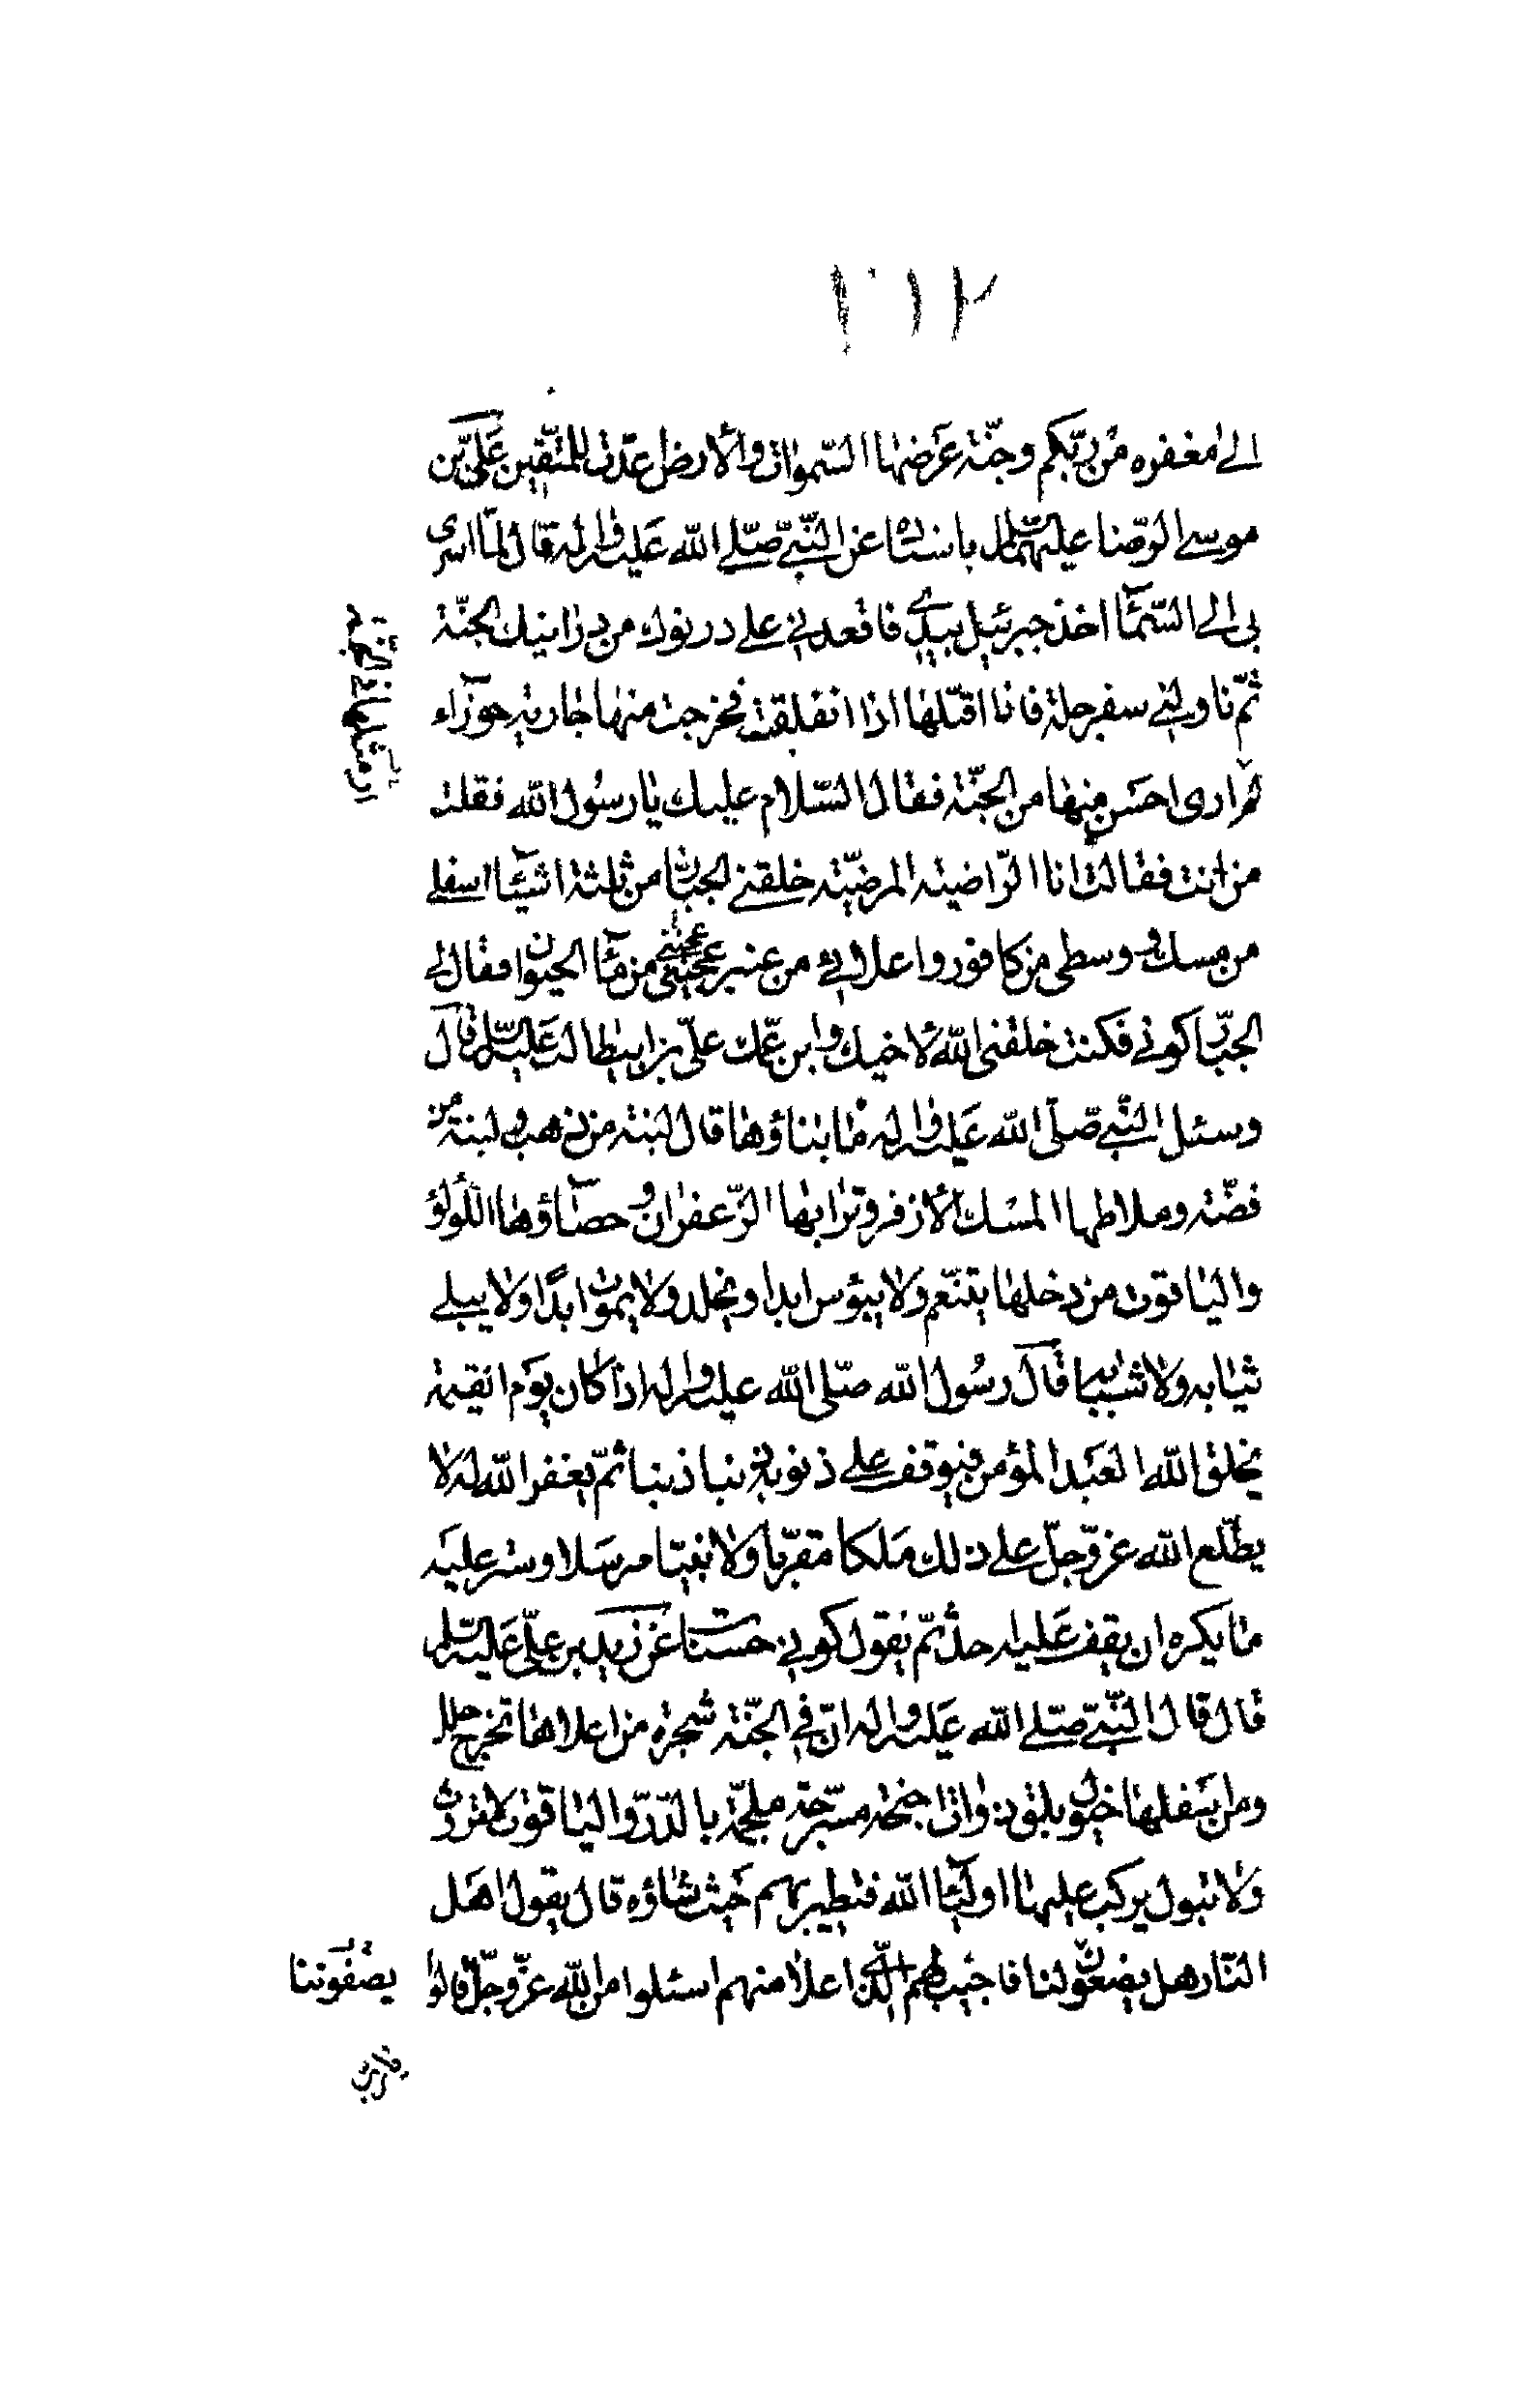 الى مغفرة من ربكم وجنة عرضها السموات والارض اعدت للمتقين على بن
موسى الرضا عليهما السلام باسناده عن النبى صلى الله عليه واله قال لما اسرى
بى الى السماء اخذ جبرئيل بيدى فاقعدنى على درنوك من درانيك الجنة
ثم ناولنى سفرجلة فانا اقبلها اذا انفلقت فخرجت منها جارية حوراء
لم ارى احسن منها من الجنة فقال السلام عليك يا رسول الله فقلت
من انت فقالت انا الراضية المرضية خلقنى الجبار من ثلثة اشياء اسفلى
من مسك ووسطى من كافور واعلائى من عنبر عجنتى من ماء الحيوان فقال لى
الجبار كونى فكنت خلقنى الله لاخيك وابن عمك على بن ابيطالب عليه السلام قال
وسئل النبى صلى الله عليه واله ما بناؤها قال لبنة من ذهب ولبنة من
فضة وملاطها المسك الاذفر وترابها الزعفران وحصاؤها اللؤلؤ
والياقوت من دخلها يتنعم ولا يبؤس ابدا ويخلد ولا يموت ابدا ولا يبلى
ثيابه ولا شبابه قال رسول الله صلى الله عليه واله اذا كان يوم القيمة
يخلق الله العبد المؤمن فيوقف على ذنوبه ذنبا ذنبا ثم يغفر الله له لا
يطلع الله عز وجل على ذلك ملكا مقربا ولا نبيا مرسلا وستر عليه
ما يكره ان يقف عليه احد ثم يقول كونى حسنات عن زيد بن على عليه السلم
قال قال النبى صلى الله عليه واله ان فى الجنة شجرة من اعلاها تخرج حلل
ومن اسفلها خيول بلق ذوات اجنحة مسرجة ملجمة بالدر والياقوت لا تروث
ولا تبول يركب عليها اولياء الله فتطير بهم حيث شاؤه قال يقول اهل
النار هل يضعون لنا فاجيب لهم الذى اعلا منهم اسئلوا من الله عز وجل قالوا
يصفوننا